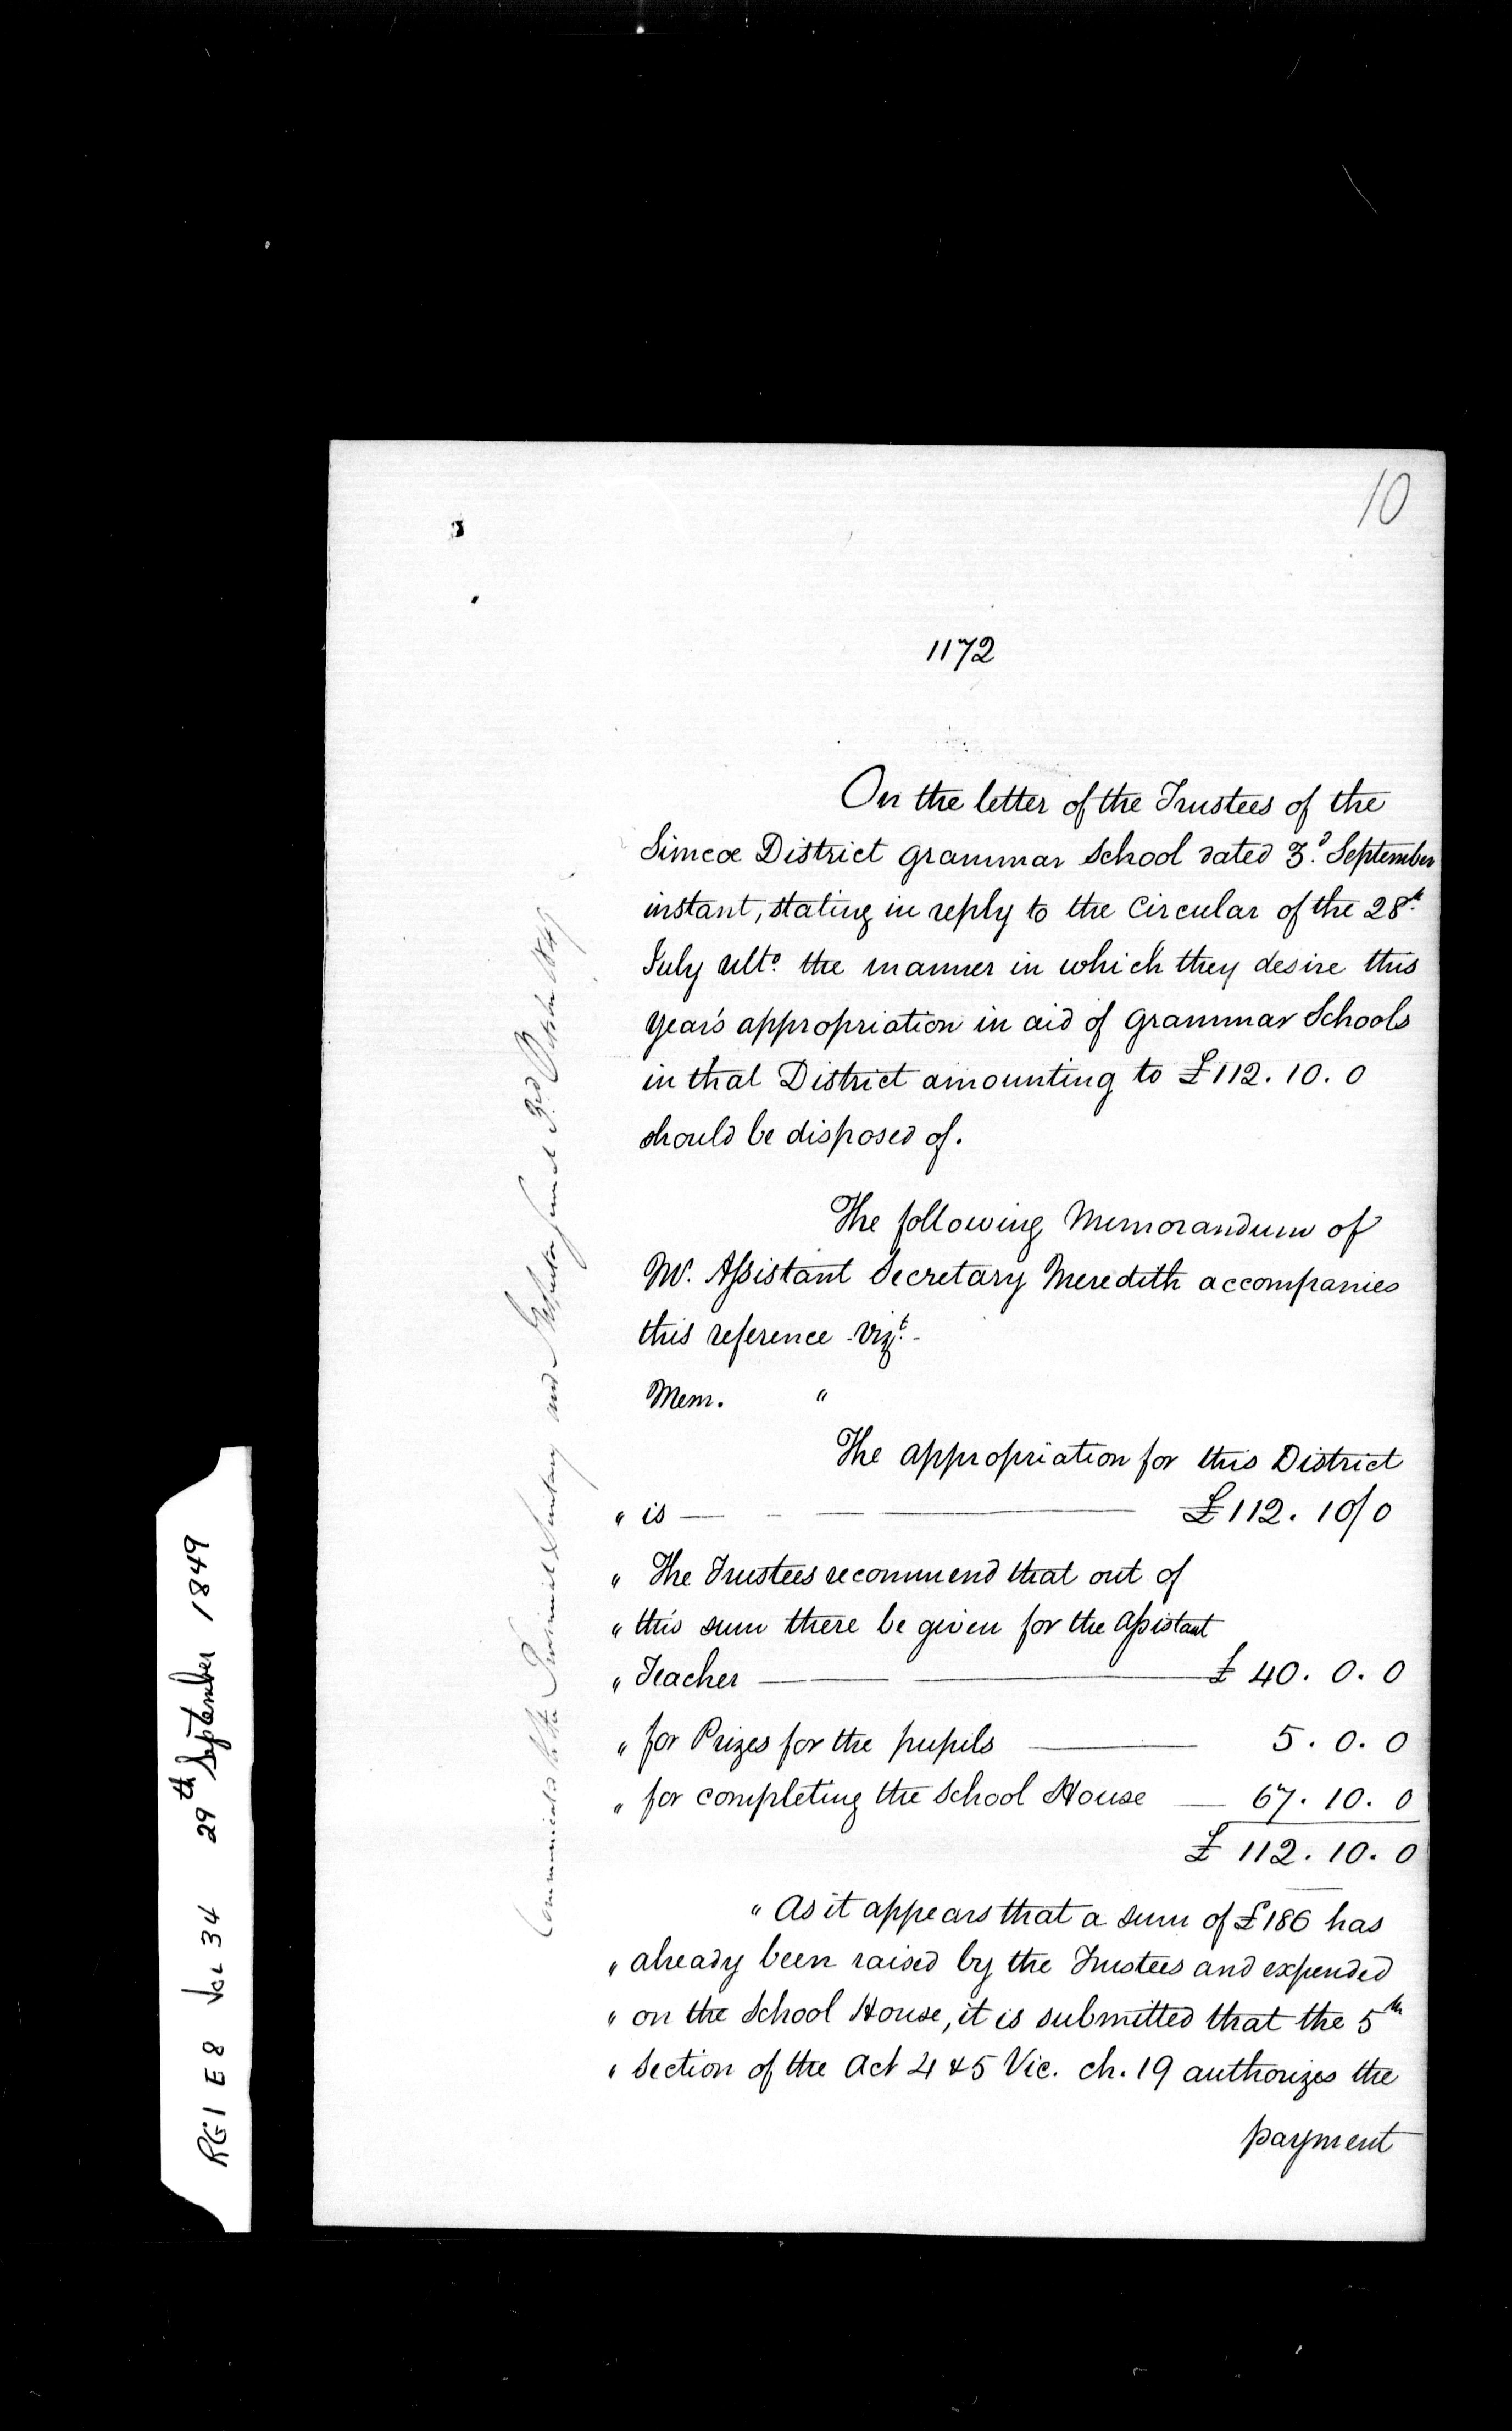 10
1172
On the letter of the Trustees of the
Simcoe District Grammar School dated 3.d September
instant, stating in reply to the Circular of the 28th
July ulto. the manner in which they desire this
Year's appropriation in aid of Grammar Schools
in that District amounting to £112. 10. 0
should be disposed of.
The following Memorandum of
Mr. Assistant Secretary Meredith accompanies
this reference - vizt. -
Mem. "
The appropriation for this District
" is — £112. 10/0
" The Trustees recommend that out of
" this sum there be given for the Assistant
" Teacher — £ 40. 0. 0
" for Prizes for the pupils — 5. 0. 0
" for completing the School House — 67. 10. 0
£ 112. 10. 0
" As it appears that a sum of £186 has
" already been raised by the Trustees and expended
" on the School House, it is submitted that the 5th
" Section of the Act 4 & 5 Vic. ch. 19 authorizes the
payment
to the Provincial Secretary and Inspector General 3rd October 1849
RG1 E8 Vol 34 29th September 1849